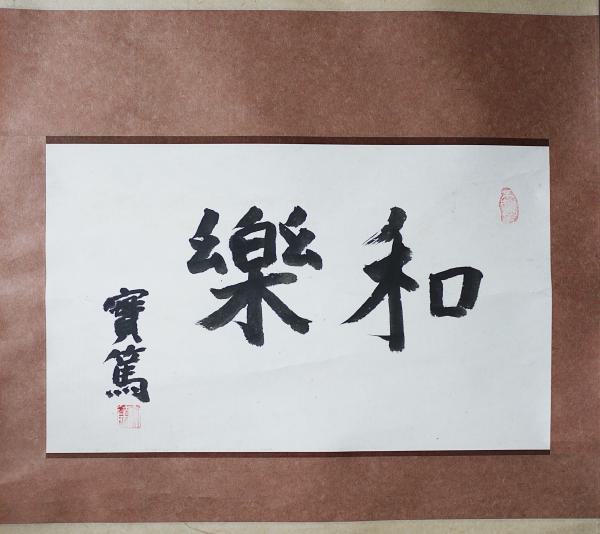 和樂
實篤